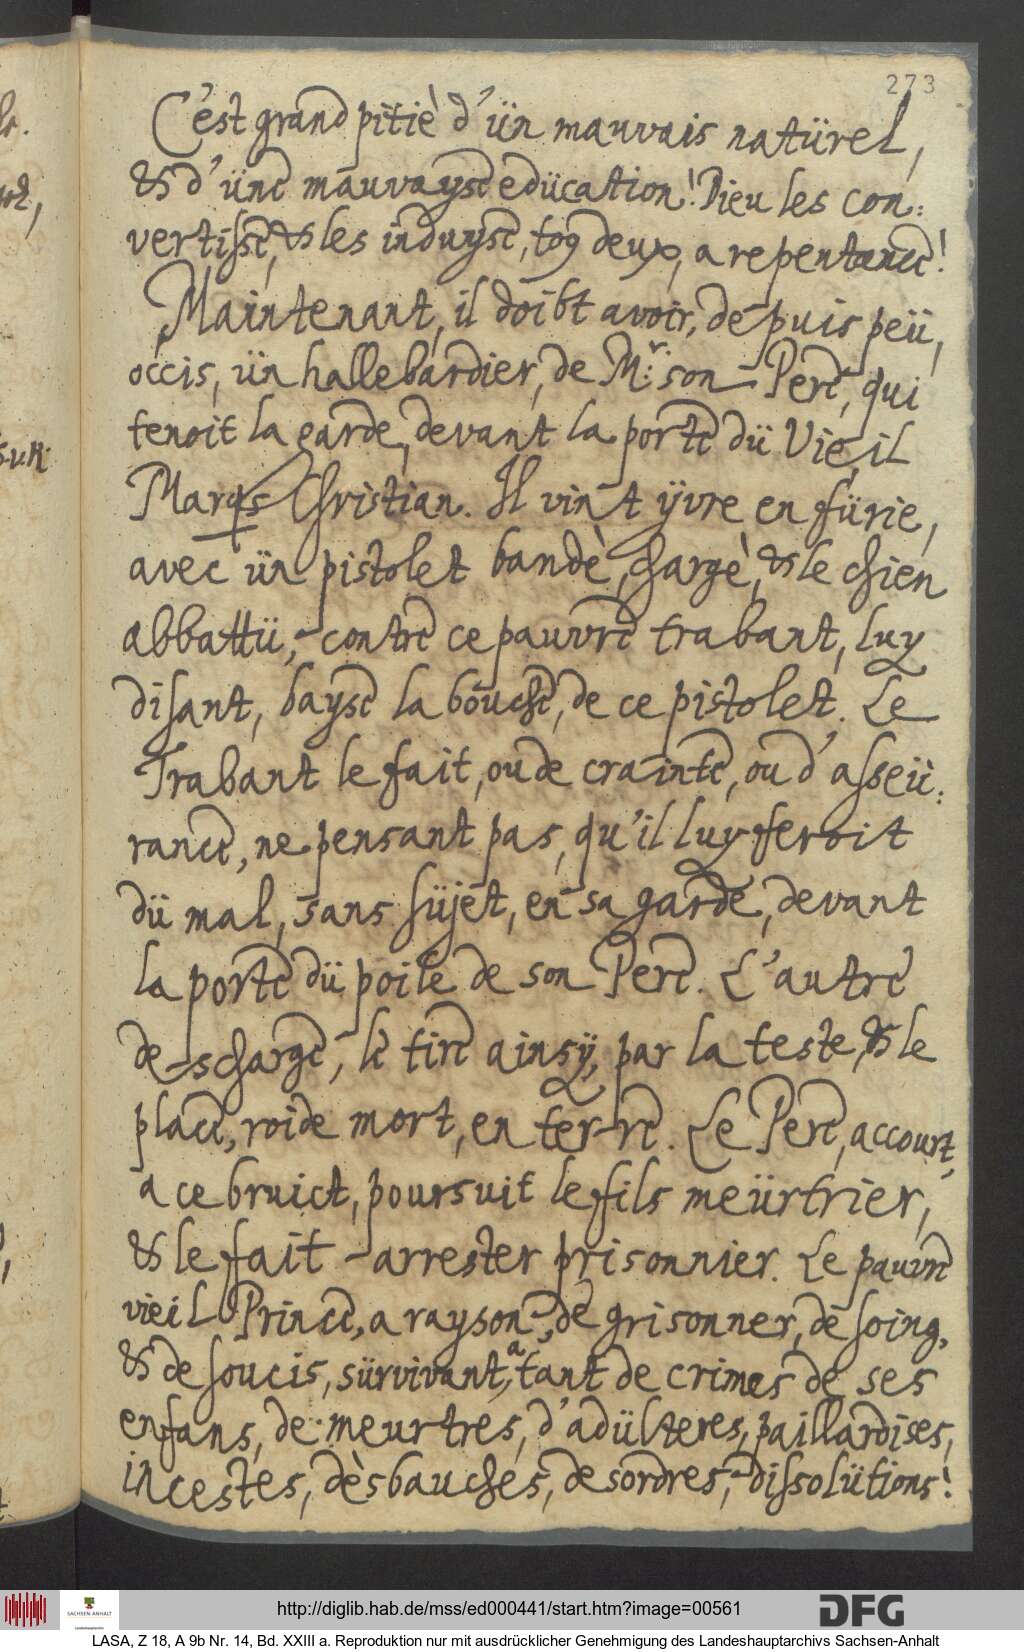 273
C'est grand pitiè d'ün mauvais natürel,
& d'üne mauvayse edücation! Dieu les con:
vertisse, & les induyse, to9 deux, a repentance!
Maintenant, il doibt avoir, de puis peü,
occis, ün hallebardier, de Mr: son Pere, qui
tenoit la garde, devant la porte dü Vieil
Marq̃s Christian. Il vint ÿvre en fürie,
avec ün pistolet bandè, chargè, & le chien
abbattü, contre ce pauvre trabant, luy
disant, bayse la bouche, de ce pistolet. Le
Trabant le fait, ou de crainte, ou d'asseü:
rance, ne pensant pas, qu'il luy feroit
dü mal, sans süjet, en sa garde, devant
la porte dü poile de son Pere. L'autre
descharge, le tire ainsÿ, par la teste, & le
place, roide mort, en ter-re. Le Pere, accourt,
a ce bruict, poursuit le fils meürtrier,
& le fait arrester prisonnier. Le pauvre
vieil Prince, a rayson, de grisonner, de soing,
& de soucis, sürvivant, a tant de crimes de ses
enfans, de meurtres, d'adülteres, paillardises,
incestes, dèsbauches, desordres, dissolütions!
SACHSEN-ANHALT
http://diglib.hab.de/mss/ed000441/start.htm?image=00561
DFG
LASA, Z 18, A 9b Nr. 14, Bd. XXIII a. Reproduktion nur mit ausdrücklicher Genehmigung des Landeshauptarchivs Sachsen-Anhalt